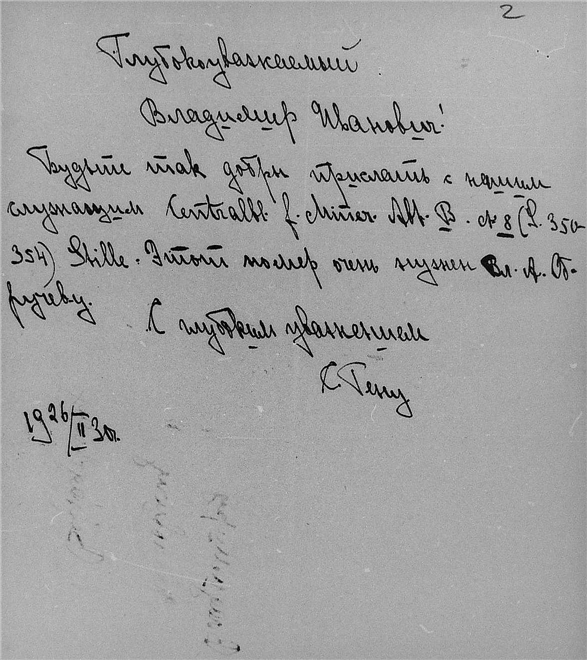 2
Глубокоуважаемый
Владимир Иванович!
Будьте так добры прислать с нашим
служащим Centralbl. f. Miner. Abt. B. № 8 (S. 350-
354) Stille. Этот номер очень нужен Вл. А. Об-
ручеву.
С глубоким уважением
1926/II 30.